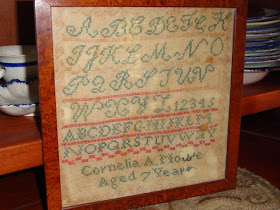 A B C D E F G H
I J K L M N O
P Q R S T U V
W X Y Z 1 2 3 4 5
A B C D E F G H I J K L M
N O P Q R S T U V W X Y
Cornelia A. Howe
Aged 7 Years